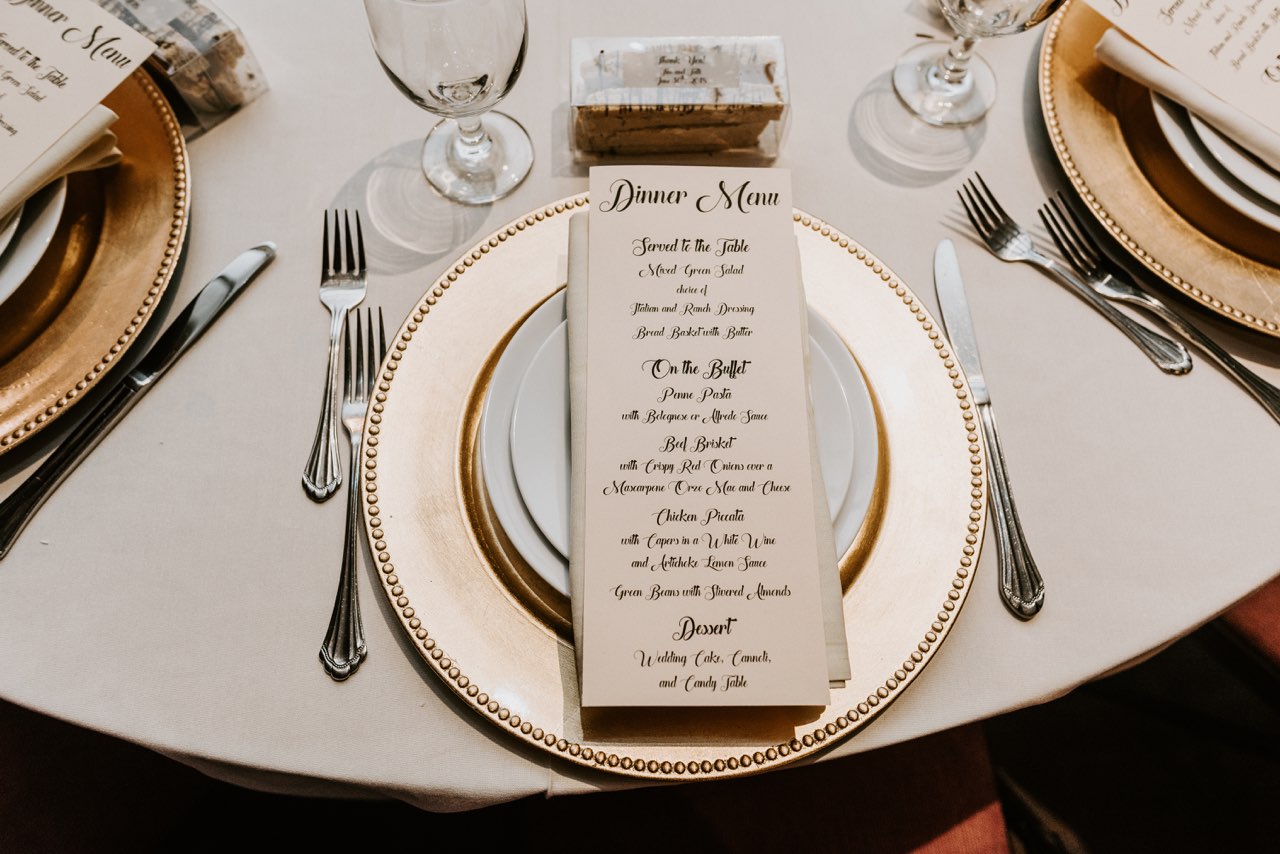 Dinner Menu
Served to the Table
Mixed Green Salad
choice of
Italian and Ranch Dressing
Bread Basket with Butter
On the Buffet
Penne Pasta
with Bolognese or Alfredo Sauce
Beef Brisket
with Crispy Red Onions over a
Mascarpone Orzo Mac and Cheese
Chicken Piccata
with Capers in a White Wine
and Artichoke Lemon Sauce
Green Beans with Slivered Almonds
Dessert
Wedding Cake, Cannoli,
and Candy Table
Thank You!
Dinner Menu
Served to the Table
Green Salad